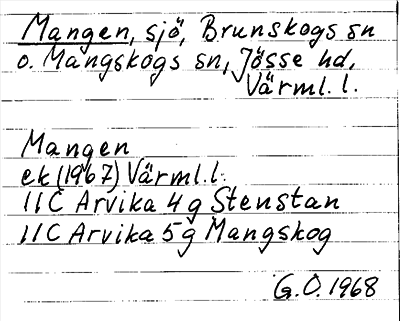 Mangen, sjö, Brunskogs sn
o. Mangskogs sn, Jösse hd,
Värml. l.
Mangen
ek (1967) Värml. l.
11C Arvika 4g Stenstan
11C Arvika 5g Mangskog
G.O. 1968